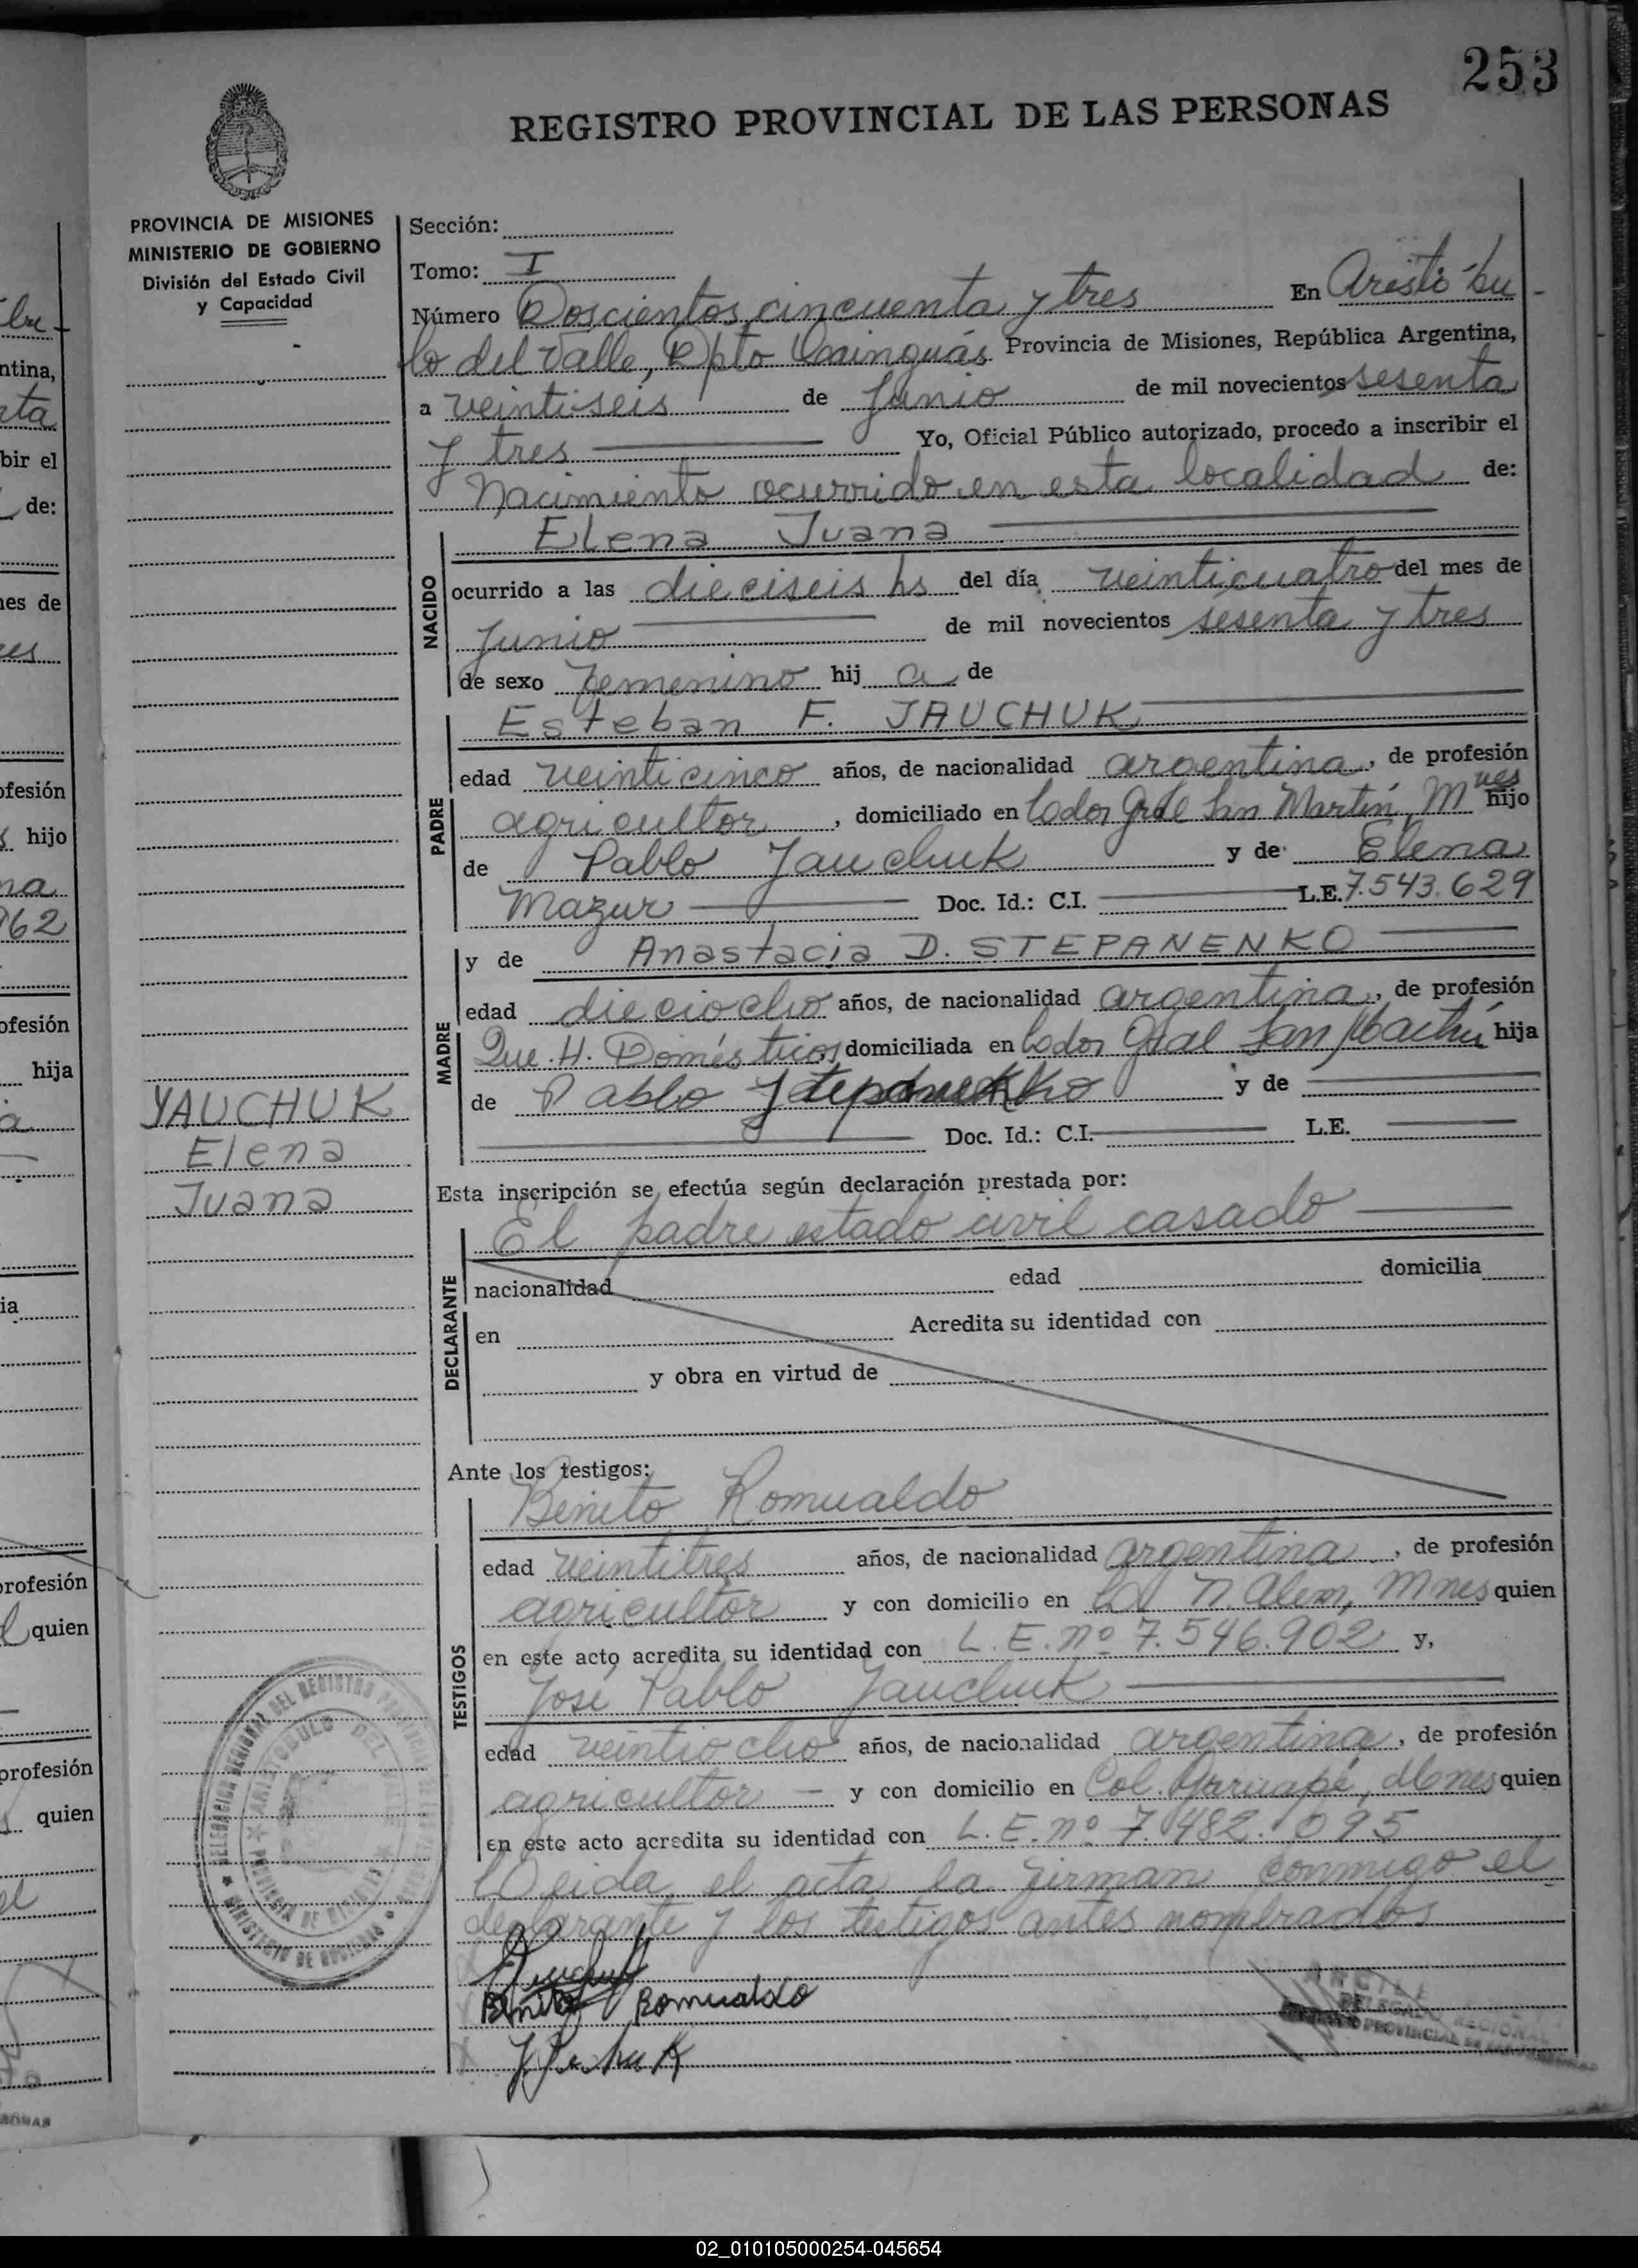 253
REGISTRO PROVINCIAL DE LAS PERSONAS
PROVINCIA DE MISIONES
MINISTERIO DE GOBIERNO
División del Estado Civil
y Capacidad
Sección:
Tomo: I
Número Doscientos cincuenta y tres En Aristóbu-
lo del Valle, Dpto Cainguás Provincia de Misiones, República Argentina,
a veintiseis de Junio de mil novecientos sesenta
y tres Yo, Oficial Público autorizado, procedo a inscribir el
Nacimiento ocurrido en esta localidad de:
NACIDO
Elena Juana
ocurrido a las dieciseis hs del día veinticuatro del mes de
Junio de mil novecientos sesenta y tres
de sexo femenino hij a de
PADRE
Esteban F. JAUCHUK
edad veinticinco años, de nacionalidad argentina, de profesión
agricultor, domiciliado en Lador Gral San Martín, Mnes hijo
de Pablo Jauchuk y de Elena
Mazur Doc. Id.: C.I. L.E. 7.543.629
MADRE
y de Anastacia D. STEPANENKO
edad dieciocho años, de nacionalidad argentina, de profesión
Que. H. Domésticos domiciliada en Lador Gral San Martín hija
de Pablo y de
Doc. Id.: C.I. L.E.
YAUCHUK
Elena
Juana
Esta inscripción se efectúa según declaración prestada por:
DECLARANTE
El padre estado civil casado
nacionalidad edad domicilia
en Acredita su identidad con
y obra en virtud de
Ante los testigos:
TESTIGOS
Benito Romualdo
edad veintitres años, de nacionalidad argentina, de profesión
agricultor y con domicilio en L N. Alem, Mnes quien
en este acto acredita su identidad con L.E. nº 7.546.902 y,
José Pablo Jauchuk
edad veintiocho años, de nacionalidad argentina, de profesión
agricultor - y con domicilio en Col. Garuapé, Mones quien
en este acto acredita su identidad con L.E. nº 7.482.095
Leida el acta la firman conmigo el
declarante y los testigos antes nombrados
Benito Romualdo
DELEGACION REGIONAL DEL REGISTRO PROVINCIAL DE LAS PERSONAS
ARISTOBULO DEL VALLE
PROVINCIA DE MISIONES
MINISTERIO DE GOBIERNO
REGIONAL
PROVINCIAL DE LAS PERSONAS
02_010105000254-045654